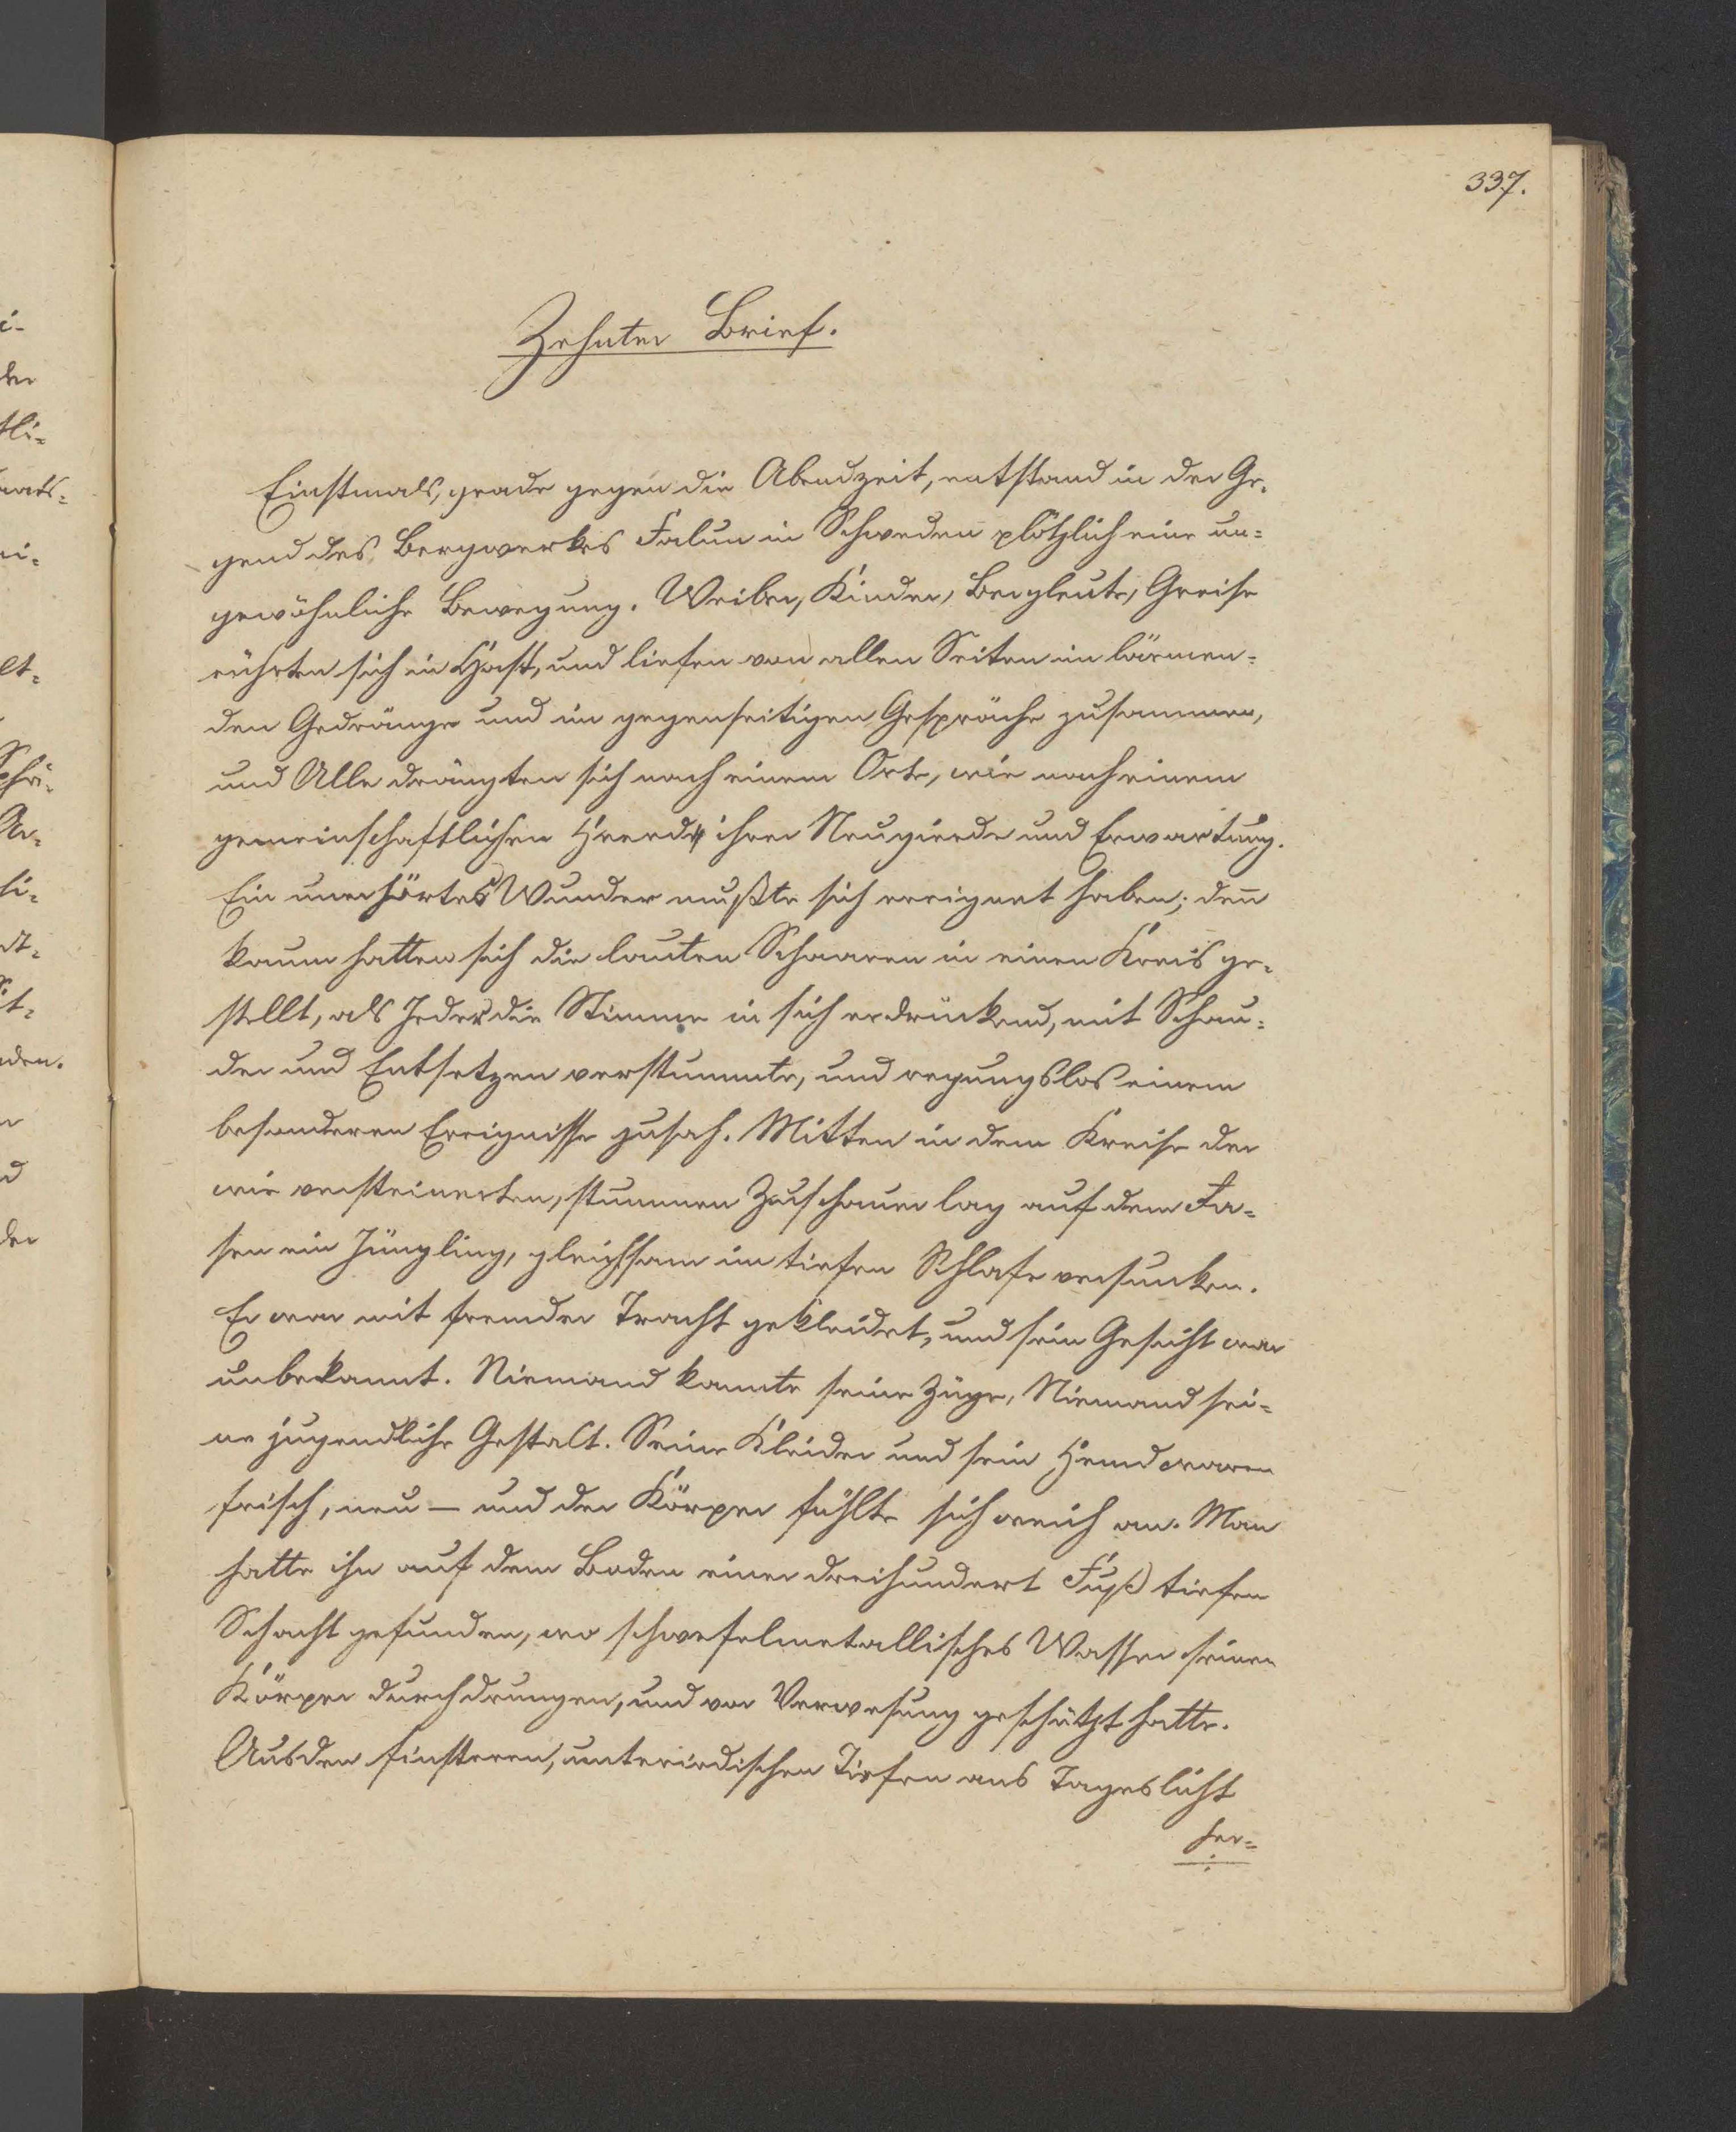 337.
Zehnter Brief.
Einstmals, grade gegen die Abendzeit, entstand in der Ge-
gend des Bergwerkes Falun in Schweden plötzlich eine un-
gewöhnliche Bewegung. Weiber, Kinder, Bergleute, Greise
rührten sich in Hast, und liefen von allen Seiten im lärmen-
den Gedränge und im gegenseitigen Gespräche zusammen,
und Alle drängten sich nach einem Orte, wie nach einem
gemeinschaftlichen Heerde ihrer Neugierde und Erwartung.
Ein unerhörtes Wunder mußte sich ereignet haben; deñ
kaum hatten sich die lauten Schaaren in einen Kreis ge-
stellt, als Jeder die Stimme in sich erdrückend, mit Schau-
der und Entsetzen verstummte, und regungslos einem
besonderen Ereignisse zusah. Mitten in dem Kreise der
wie versteinerten, stummen Zuschauer lag auf dem
sen ein Jüngling, gleichsam im tiefen Schlafe versunken.
Er war mit fremder Tracht gekleidet, und sein Gesicht war
unbekannt. Niemand kannte seine Züge, Niemand sei-
ne jugendliche Gestalt. Seine Kleider und sein Hemd waren
frisch, neu — und der Körper fühlte sich weich an. Man
hatte ihn auf dem Boden einer dreihundert Fuß tiefen
Schacht gefunden, wo schwefelmetallisches Wasser seinen
Körper durchdrungen, und vor Verwesung geschützt hatte.
Aus den finsteren, unterirdischen Tiefen ans Tageslicht
her-